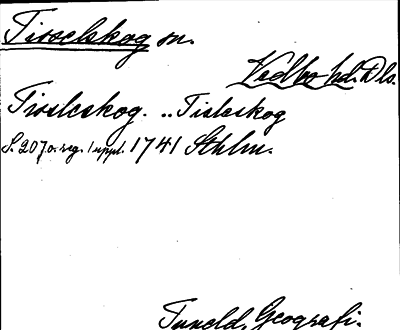 Tisselskog sn.
Vedbo hd. Dls.
Tissleskog. .. Tisleskog
S. 207 o. reg. 1 uppl. 1741 Sthlm.
Tuneld, Geografi.